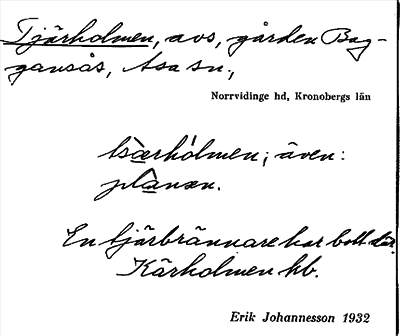 Tjärholmen, avs, gården Bag-
gansås, Asa sn.,
Norrvidinge hd, Kronobergs län
ɕæ̀rhólmen; även:
plànæn.
En tjärbrännare har bott där.
Kärholmen hb.
Erik Johannesson 1932